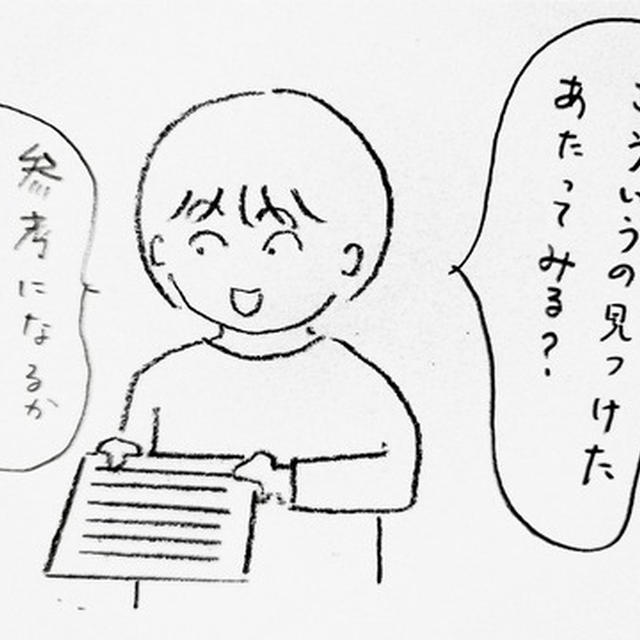 こういうの見つけた
あたってみる?
参考になるか